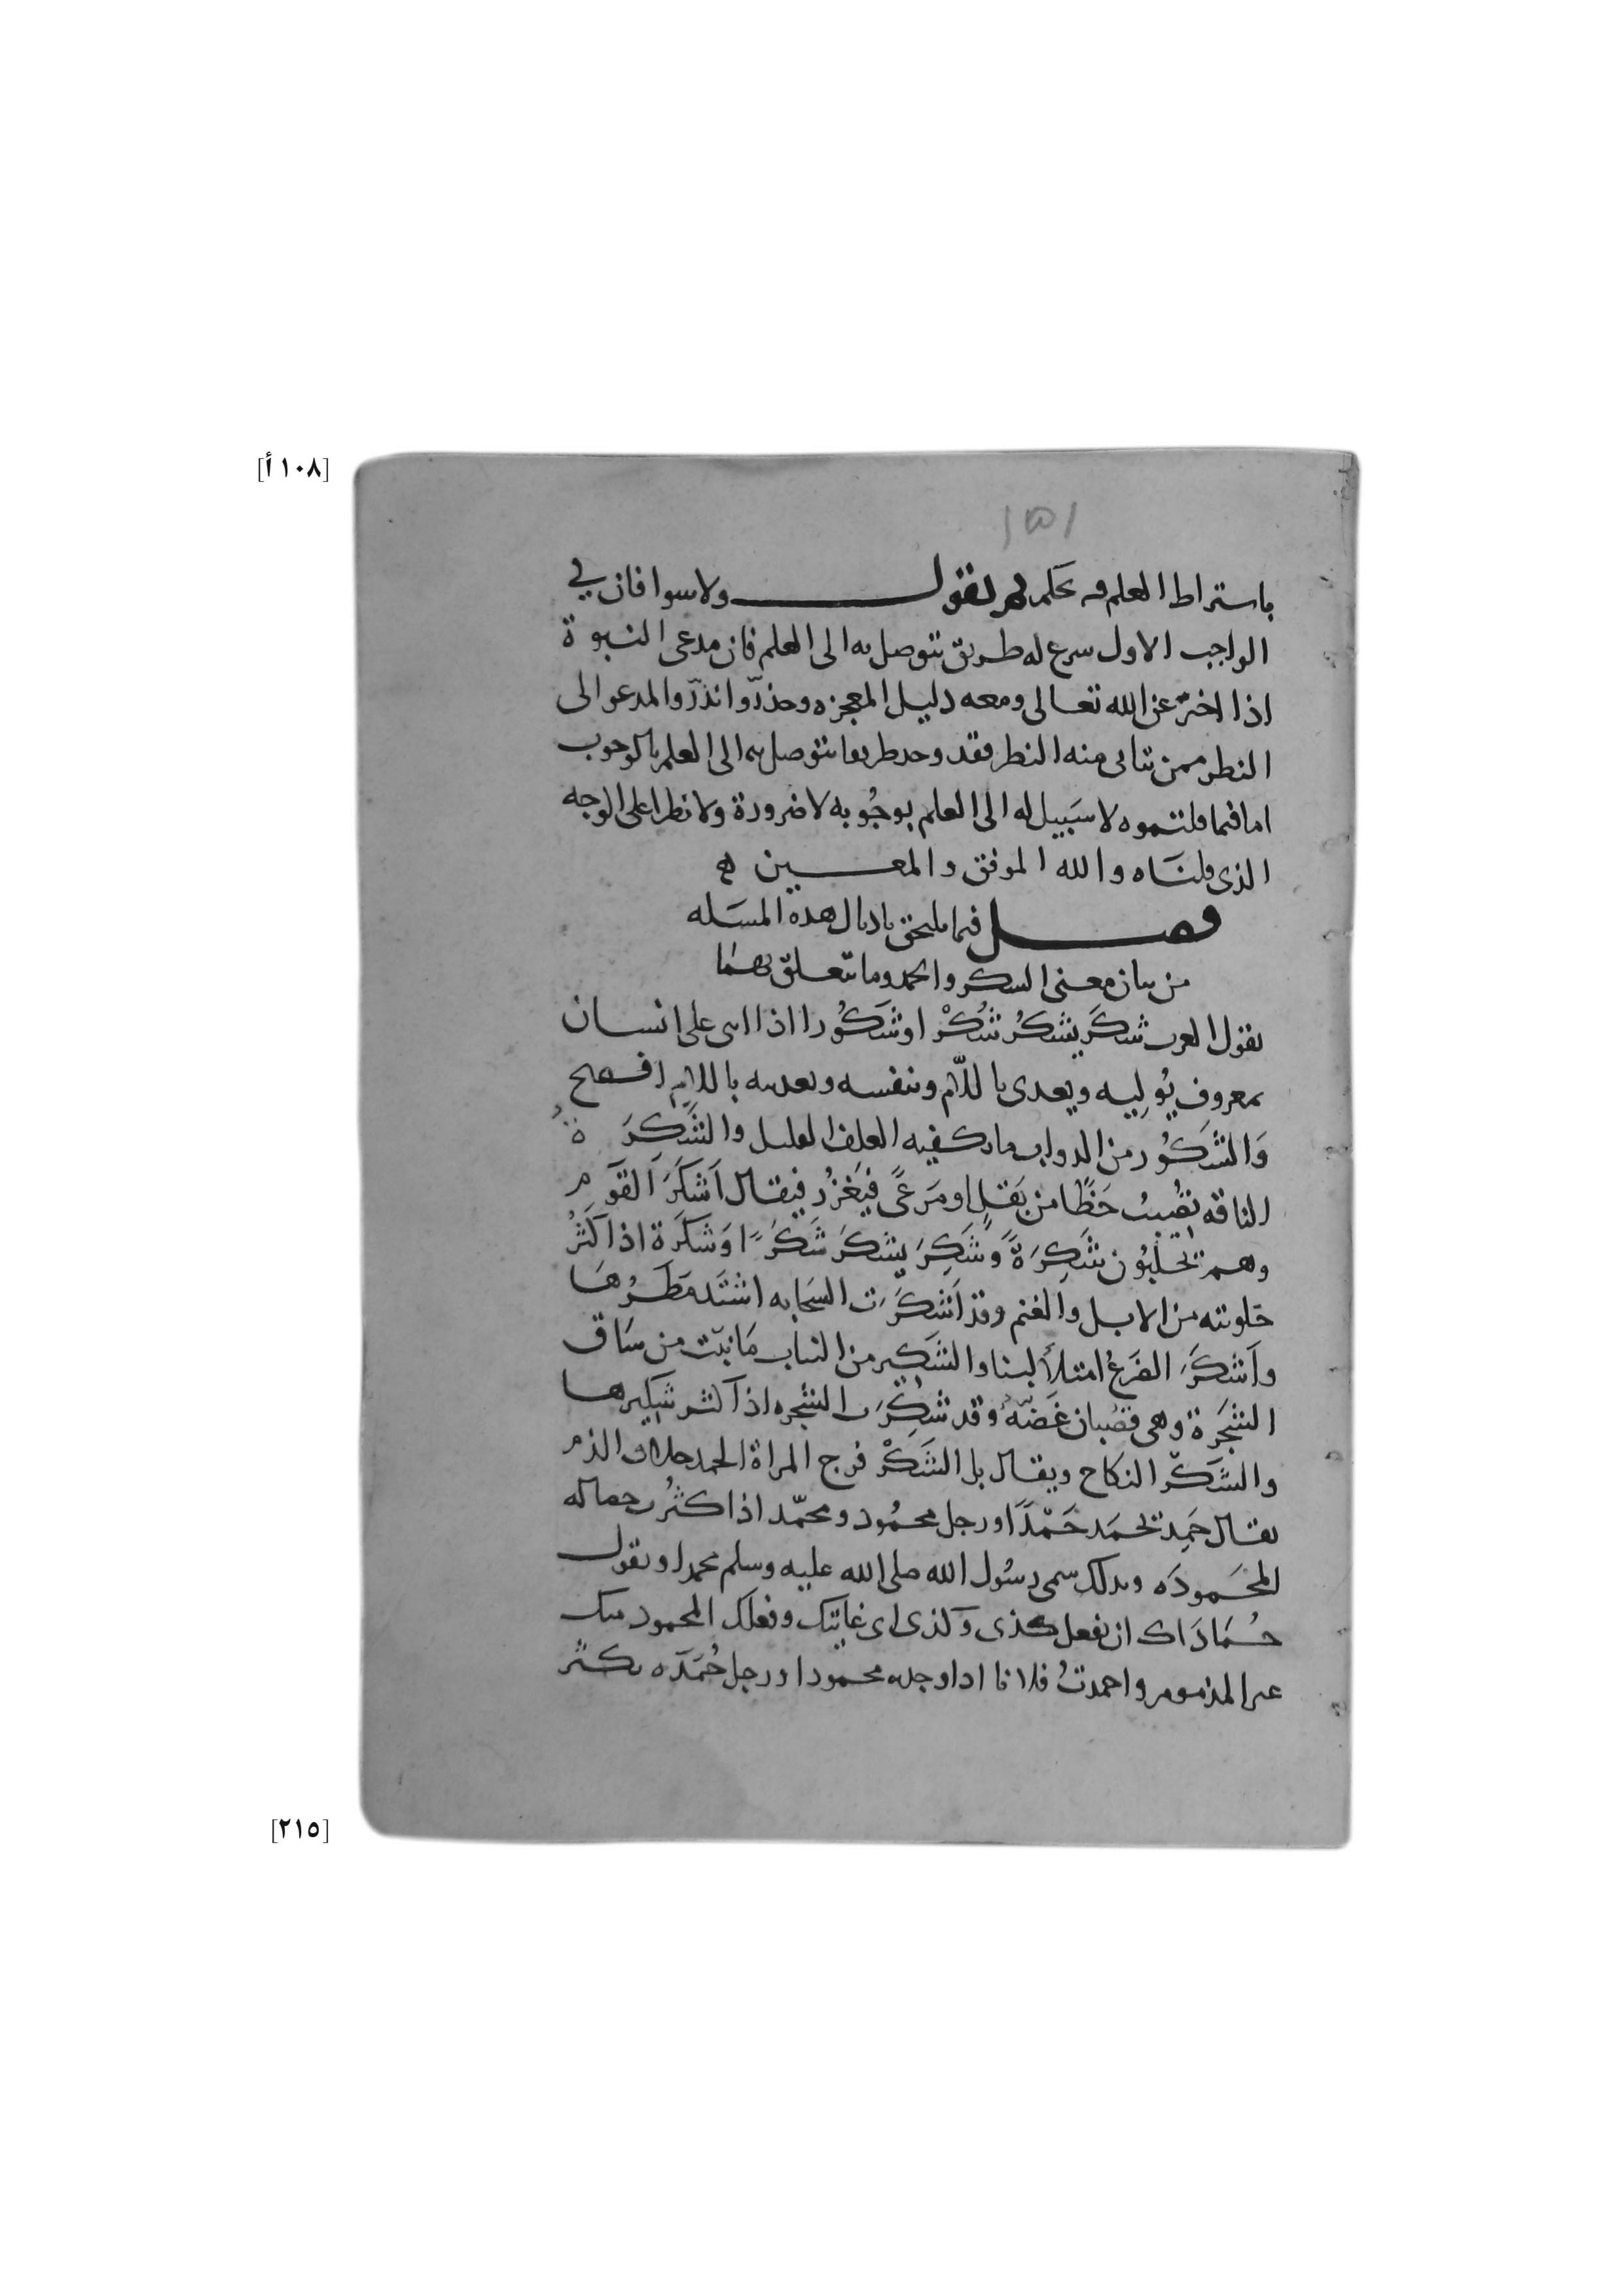 [١٠٨ أ]
١٥١
باشتراط العلم فيه تحكم ثم نقول ولا سوا فان في
الواجب الاول شرع له طريق يتوصل به الى العلم فان مدعي النبوة
اذا اخبر عن الله تعالى ومعه دليل المعجزه وحذّر وانذر والمدعو الى
النظر ممن يتاتى منه النظر فقد وجد طريقا يتوصل به الى العلم بالوجوب
اما فيما قلتموه لا سَبيل له الى العلم بوجُوبه لا ضرورة ولا نظرا على الوجه
الذي قلنَاه والله الموفق والمعين
فصل فيما يلتحق باذيال هذه المسَله
من بيان معنى الشكر والحمد وما يتعلّق بهمَا
تقول العرب شكَرَ يشكرُ شُكْرا وشكُورا اذا اثنى على انسان
بمعروف يُولِيه ويعدى باللّام وبنفسه وتعديته باللام افصح
وَالشَّكُور من الدواب ما يكفيه العلف القليل والشَّكِرَةُ
الناقه تصُيبُ حَظًّا من بَقلٍ او مَرعًى فيَغزُر فيقال اَشكَرَ القَوم
وهم يحلبُون شَكِرَةً وشَكِرَ يشكَرَ شَكَرًا وَشكَرَة اذا كثُر
حَلوبته من الابل والغنم وقد اَشكَرَت السَحابه اشتَد مَطَرُهَا
واَشكَرَ الضَرعُ امتلأَ لبنا والشَكير من النبات مَا نبَت من سَاق
الشجَرة وهي قضُبان غَضّة وقد شَكِرَت الشجره اذا كثر شَكيرها
والشَكْرُ النكاح ويقال بل الشَكْرُ فرج المراة الحمد خلاف الذم
يقال حَمِد يحمَد حَمْدًا ورجل محمُود ومحمّد اذا كثُرت خصاله
المحَمودَه وبذلك سمى رسُول الله صلى الله عليه وسلم محمدا وتقول
حُمَادَاك ان تفعل كذى وكذى اى غايتك وفعلك المحمود منك
غير المذموم واحمدتُ فلانا اذا وجدته محمودا ورجل حُمَدَه يكثر
[٢١٥]